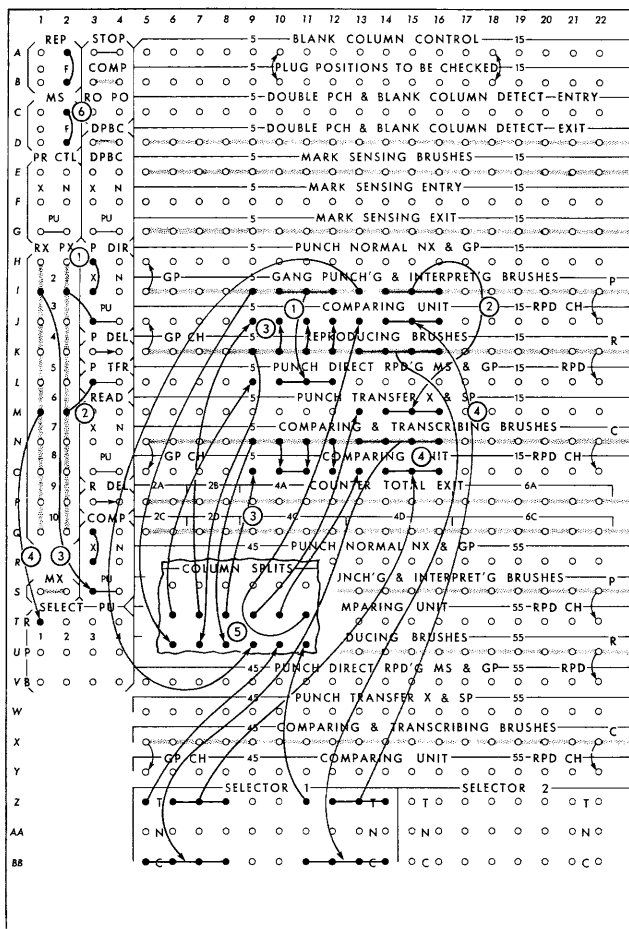 1 2 3 4 5 6 7 8 9 10 11 12 13 14 15 16 17 18 19 20 21 22
REP STOP 5 BLANK COLUMN CONTROL 15
A
F COMP PLUG POSITIONS TO BE CHECKED
B
MS RO PO 5 DOUBLE PCH & BLANK COLUMN DETECT-ENTRY
C 6
F DPBC 5 DOUBLE PCH & BLANK COLUMN DETECT-EXIT
D
PR CTL DPBC 5 MARK SENSING BRUSHES 15
E
X N X N 5 MARK SENSING ENTRY 15
F
PU PU 5 MARK SENSING EXIT 15
G
RX PX P DIR 5 PUNCH NORMAL NX & GP 15
H 1
2 X N GP GANG PUNCH'G & INTERPRET'G BRUSHES P
I
3 PU 5 1 COMPARING UNIT 2 15-RPD CH
J 3
4 P DEL GP CH 5 REPRODUCING BRUSHES 15 R
K
5 P TFR 5 PUNCH DIRECT RPD'G MS & GP 15 RPD
L
6 READ 5 PUNCH TRANSFER X & SP 15
M 2 4
7 X N 5 COMPARING & TRANSCRIBING BRUSHES C
N
8 PU GP CH 5 COMPARING UNIT 4 15-RPD CH
O
9 R DEL 2A 2B 4A COUNTER TOTAL EXIT 6A
P
10 COMP 2C 2D 3 4C 4D 6C
Q
4 3 X N 45 PUNCH NORMAL NX & GP 55
R
MX PU COLUMN SPLITS NCH'G & INTERPRET'G BRUSHES P
S
SELECT-PU MPARING UNIT 55-RPD CH
T R
1 2 3 4 5 DUCING BRUSHES 55 R
U P
45 PUNCH DIRECT RPD'G MS & GP 55 RPD
V B
45 PUNCH TRANSFER X & SP 55
W
45 COMPARING & TRANSCRIBING BRUSHES C
X
GP CH 45 COMPARING UNIT 55-RPD CH
Y
SELECTOR 1 SELECTOR 2
Z T T T T
AA N N N N
BB C C C C